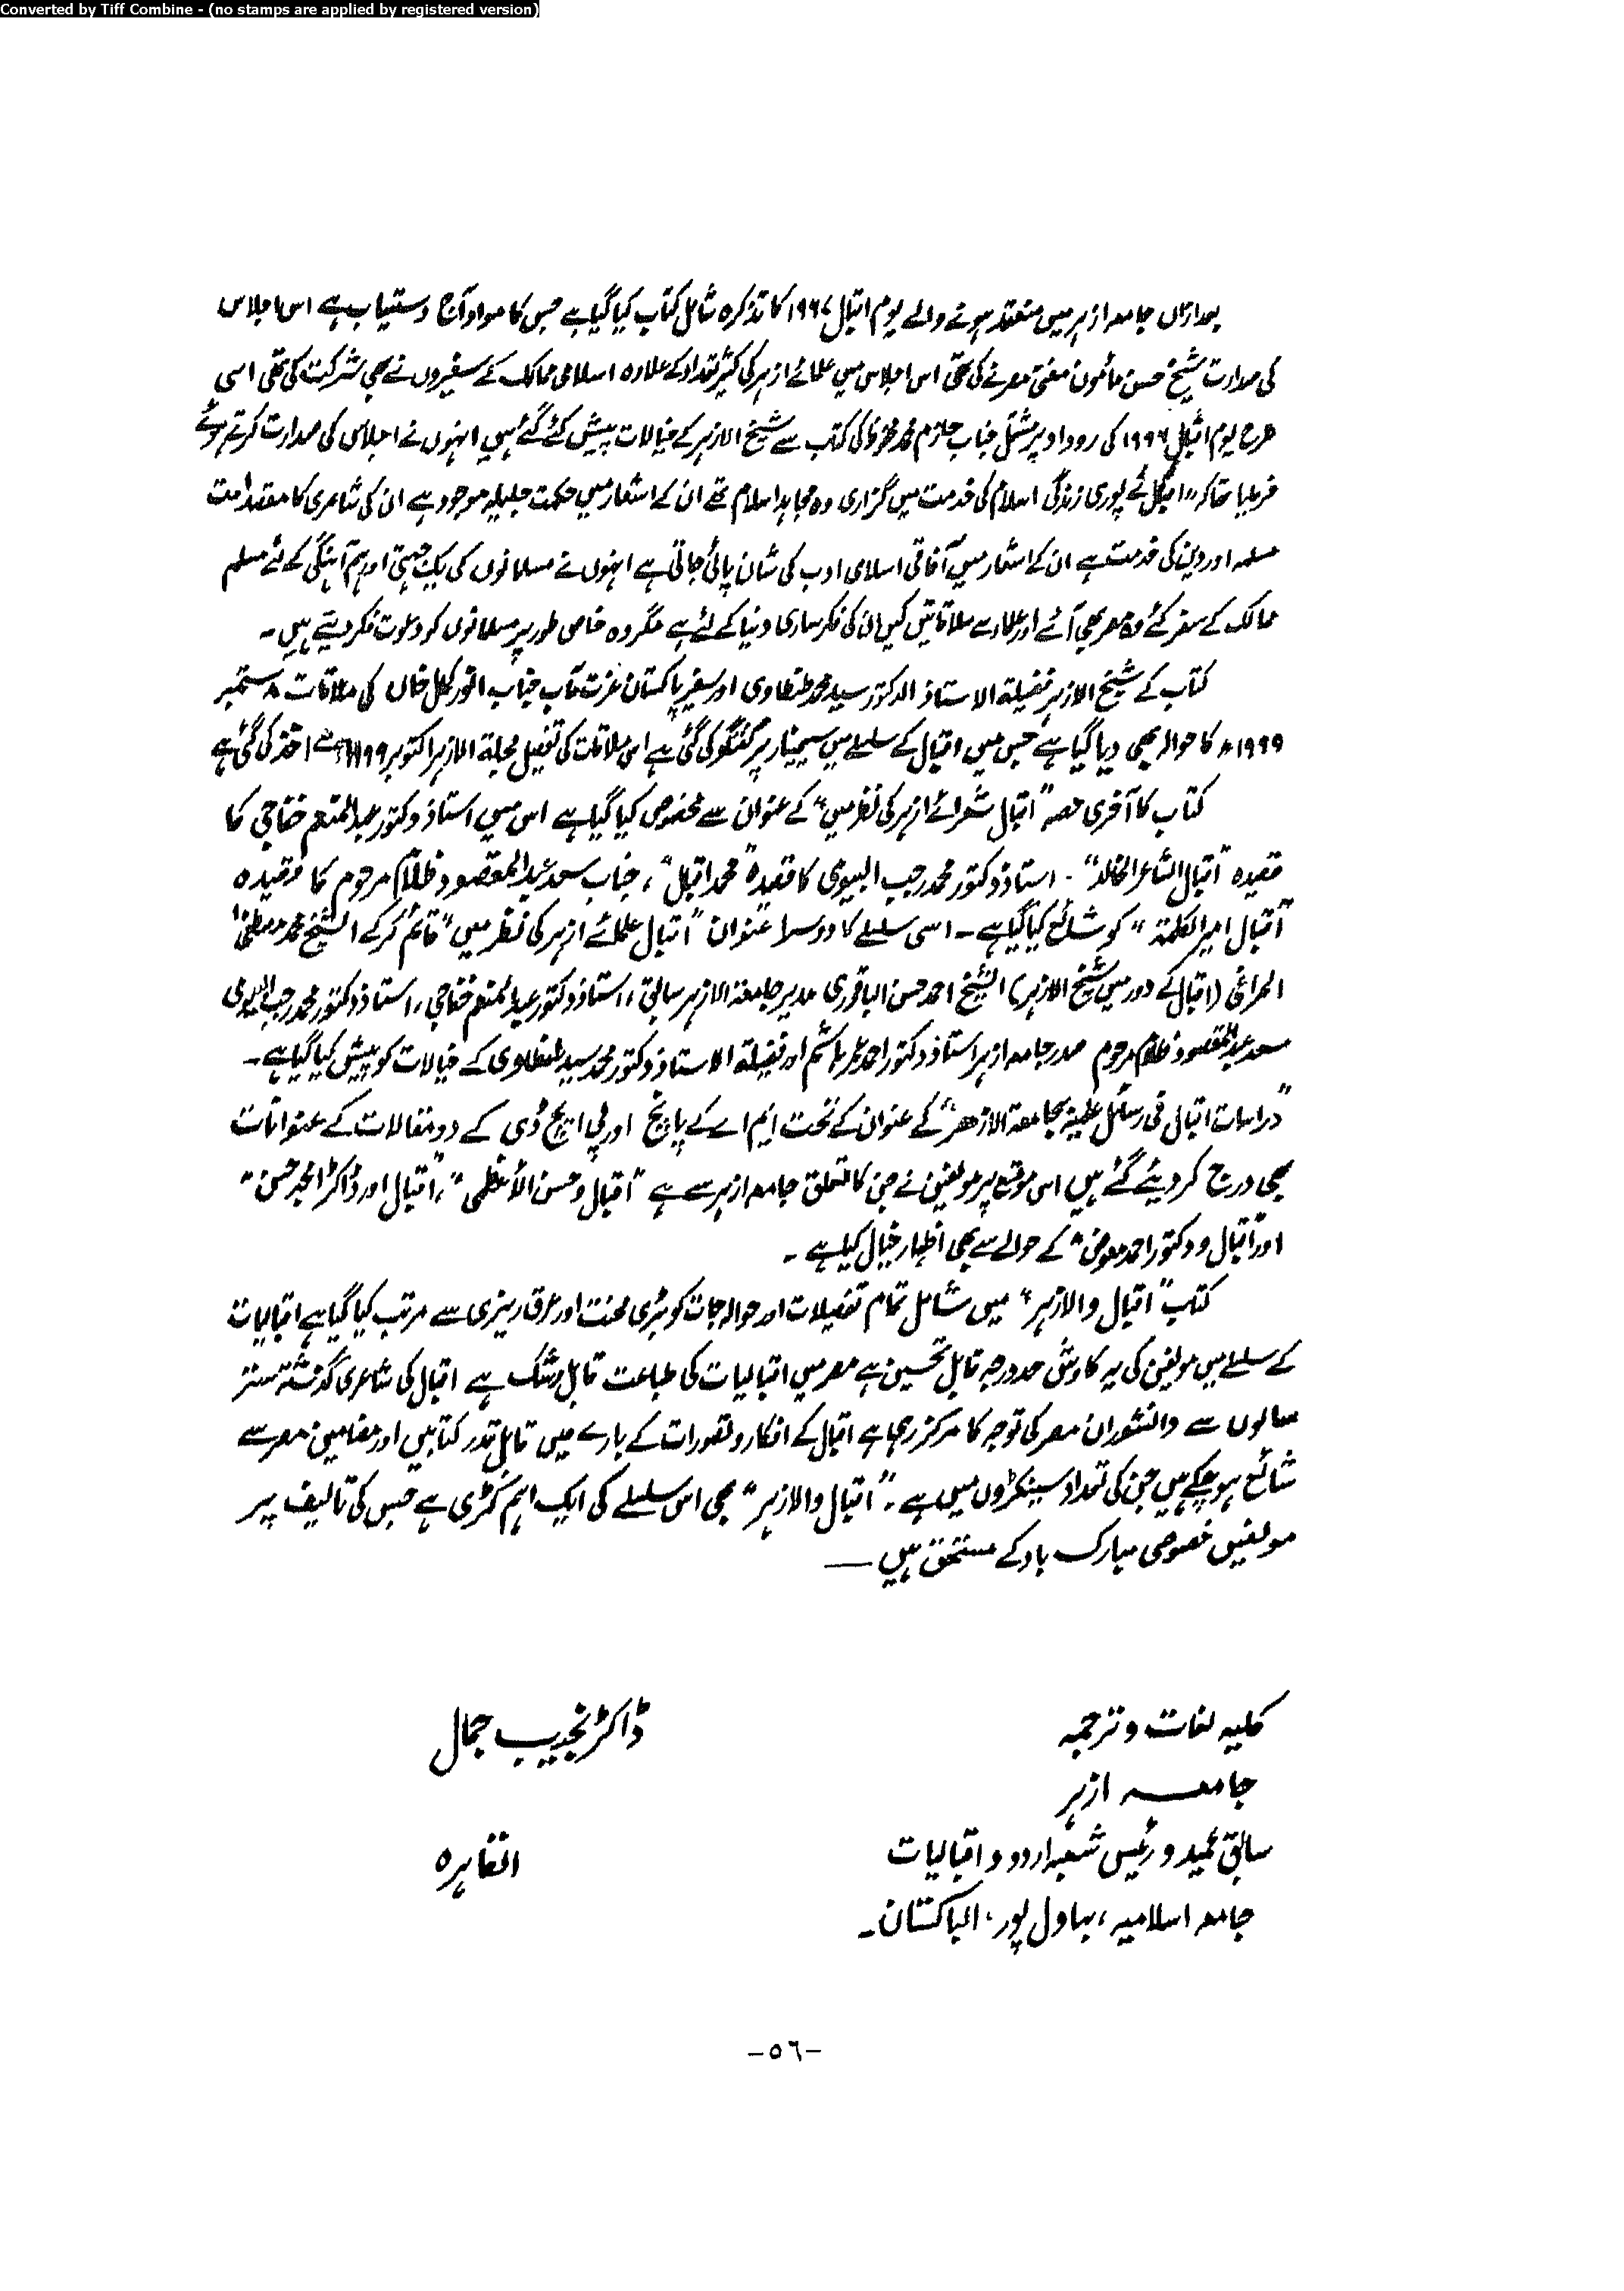 Converted by Tiff Combine - (no stamps are applied by registered version)
بعد ازاں جامعہ ازہر میں منعقد ہونے والے یوم اقبال ۱۹۶۷ کا تذکرہ شامل کتاب کیا گیا ہے جس کا مواد آج دستیاب ہے اس اجلاس
کی صدارت شیخ حسن مأمون مفتی مصر نے کی تھی اس اجلاس میں علمائے ازہر کی کثیر تعداد کے علاوہ اسلامی ممالک کے سفیروں نے بھی شرکت کی تھی اسی
طرح یوم اقبال کی روداد پر مشتمل جناب حازم محمد محفوظ کی کتب سے شیخ الازہر کے خیالات پیش کئے گئے ہیں انہوں نے اجلاس کی صدارت کرتے ہوئے
فرمایا تھا کہ "اقبال نے پوری زندگی اسلام کی خدمت میں گزاری وہ مجاہد اسلام تھے ان کے اشعار میں حکمت جلیلہ موجود ہے ان کی شاعری کا مقصد امت
مسلمہ اور دین کی خدمت ہے ان کے اشعار میں آفاقی اسلامی ادب کی شان پائی جاتی ہے انہوں نے مسلمانوں کی یک جہتی اور ہم آہنگی کے لئے مسلم
ممالک کے سفر کئے وہ مصر بھی آئے اور علماء سے ملاقاتیں کیں ان کی فکر ساری دنیا کے لئے ہے مگر وہ خاص طور پر مسلمانوں کو دعوت فکر دیتے ہیں۔
کتاب کے شیخ الازہر فضیلة الاستاذ الدکتور سید محمد طنطاوی اور سفیر پاکستان عزت مآب جناب انور کمال خاں کی ملاقات ۸ ستمبر
۱۹۹۹ء کا حوالہ بھی دیا گیا ہے جس میں اقبال کے سلسلے میں سیمینار پر گفتگو کی گئی ہے اس ملاقات کی تفصیل مجلة الازہر اکتوبر ۱۹۹۹ء سے اخذ کی گئی ہے
کتاب کا آخری حصہ "اقبال شعرائے ازہر کی نظر میں" کے عنوان سے مخصوص کیا گیا ہے اس میں استاذ دکتور عبدالمنعم خفاجی کا
قصیدہ "اقبال الشاعر الخالد"۔ استاذ دکتور محمد رجب البیومی کا قصیدہ "محمد اقبال"، جناب سعد عبدالمقصود ظلام مرحوم کا قصیدہ
"اقبال امیر الکلمة" کو شائع کیا گیا ہے۔ اسی سلسلے کا دوسرا عنوان "اقبال علمائے ازہر کی نظر میں" قائم کر کے الشیخ محمد مصطفیٰ
المراغی (اقبال کے دور میں شیخ الازہر) الشیخ احمد حسن الباقوری مدیر جامعة الازہر سابق، استاذ دکتور عبدالمنعم خفاجی، استاذ دکتور محمد رجب البیومی
سعد عبدالمقصود ظلام مرحوم صدر جامعہ ازہر استاذ دکتور احمد عمر ہاشم اور فضیلة الاستاذ دکتور محمد سید طنطاوی کے خیالات کو پیش کیا گیا ہے۔
"دراسات اقبال فی رسائل علمیة بجامعة الازھر" کے عنوان کے تحت ایم اے کے پانچ اور پی ایچ ڈی کے دو مقالات کے عنوانات
بھی درج کر دیئے گئے ہیں اس موقع پر مولفین نے جن کا تعلق جامعہ ازہر سے ہے "اقبال و حسن الأعظمی"، "اقبال اور ڈاکٹر امجد حسن"
اور "اقبال و دکتور احمد معوض" کے حوالے سے بھی اظہار خیال کیا ہے۔
کتاب "اقبال والازہر" میں شامل تمام تفصیلات اور حوالہ جات کو بڑی محنت اور عرق ریزی سے مرتب کیا گیا ہے اقبالیات
کے سلسلے میں مولفین کی یہ کاوش حد درجہ قابل تحسین ہے مصر میں اقبالیات کی طباعت قابل رشک ہے اقبال کی شاعری گذشتہ ستر
سالوں سے دانشوران مصر کی توجہ کا مرکز رہی ہے اقبال کے افکار و تصورات کے بارے میں قابل قدر کتابیں اور مضامین مصر سے
شائع ہو چکے ہیں جن کی تعداد سینکڑوں میں ہے۔ "اقبال والازہر" بھی اس سلسلے کی ایک اہم کڑی ہے جس کی تالیف پر
مولفین خصوصی مبارک باد کے مستحق ہیں ــــ
ڈاکٹر نجیب جمال
القاہرہ
کلیہ لغات و ترجمہ
جامعہ ازہر
سابق عمید و رئیس شعبہ اردو و اقبالیات
جامعہ اسلامیہ، بہاول پور، الپاکستان۔
-٥٦-